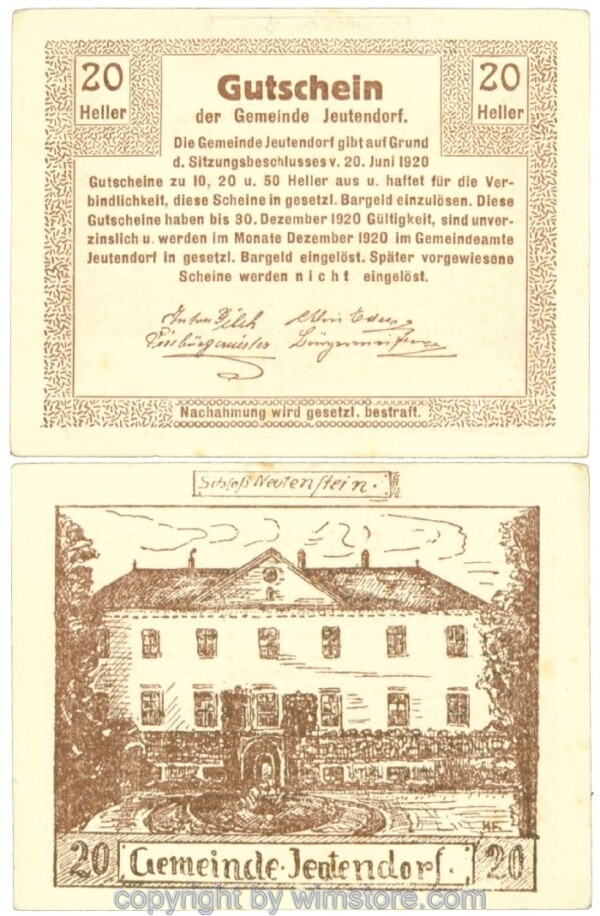 20 Heller
Gutschein
20 Heller
der Gemeinde Jeutendorf.
Die Gemeinde Jeutendorf gibt auf Grund
d. Sitzungsbeschlusses v. 20. Juni 1920
Gutscheine zu 10, 20 u. 50 Heller aus u. haftet für die Ver-
bindlichkeit, diese Scheine in gesetzl. Bargeld einzulösen. Diese
Gutscheine haben bis 30. Dezember 1920 Gültigkeit, sind unver-
zinslich u. werden im Monate Dezember 1920 im Gemeindeamte
Jeutendorf in gesetzl. Bargeld eingelöst. Später vorgewiesene
Scheine werden nicht eingelöst.
Anton
Vizebürgermeister Bürgermeister
Nachahmung wird gesetzl. bestraft.
Schloß Neutenstein.
HK
20 Gemeinde·Jeutendorf. 20
copyright by wimstore.com